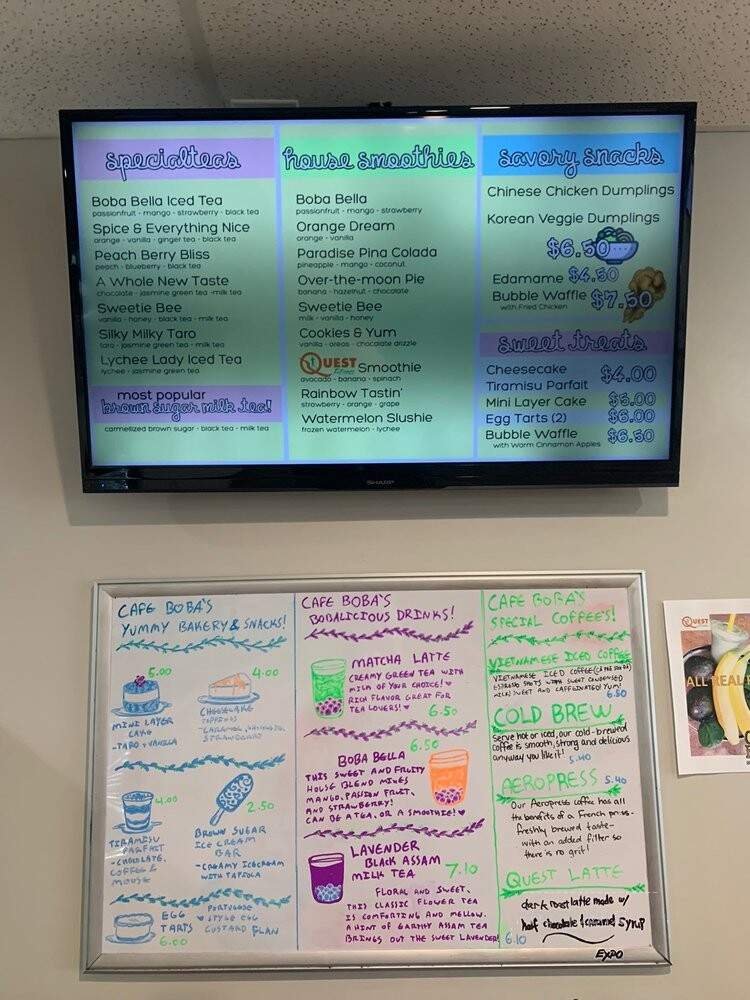 specialteas
Boba Bella Iced Tea
passionfruit - mango - strawberry - black tea
Spice & Everything Nice
orange - vanilla - ginger tea - black tea
Peach Berry Bliss
peach - blueberry - black tea
A Whole New Taste
chocolate - jasmine green tea - milk tea
Sweetie Bee
vanilla - honey - black tea - milk tea
Silky Milky Taro
taro - jasmine green tea - milk tea
Lychee Lady Iced Tea
lychee - jasmine green tea
most popular
brown sugar milk tea!
carmelized brown sugar - black tea - milk tea
house smoothies
Boba Bella
passionfruit - mango - strawberry
Orange Dream
orange - vanilla
Paradise Pina Colada
pineapple - mango - coconut
Over-the-moon Pie
banana - hazelnut - chocolate
Sweetie Bee
milk - vanilla - honey
Cookies & Yum
vanilla - oreos - chocolate drizzle
QUEST Smoothie
avocado - banana - spinach
Rainbow Tastin'
strawberry - orange - grape
Watermelon Slushie
frozen watermelon - lychee
savory snacks
Chinese Chicken Dumplings
Korean Veggie Dumplings
$6.50
Edamame $4.50
Bubble Waffle $7.50
with Fried Chicken
sweet treats
Cheesecake
Tiramisu Parfait $4.00
Mini Layer Cake $5.00
Egg Tarts (2) $6.00
Bubble Waffle $6.50
with Warm Cinnamon Apples
SHARP
CAFE BOBA'S
YUMMY BAKERY & SNACKS!
5.00
MINI LAYER
CAKE
-TARO & VANILLA
4.00
CHEESECAKE
TOPPINGS
STRAWBERRY
4.00
TIRAMISU
PARFAIT
-CHOCOLATE,
COFFEE &
MOUSE
2.50
BROWN SUGAR
ICE CREAM
BAR
-CREAMY ICECREAM
WITH TAPIOCA
EGG
TARTS
6.00
PORTUGESE
STYLE EGG
CUSTARD FLAN
CAFE BOBA'S
BOBALICIOUS DRINKS!
MATCHA LATTE
CREAMY GREEN TEA WITH
MILK OF YOUR CHOICE!
RICH FLAVOR GREAT FOR
TEA LOVERS!
6.50
BOBA BELLA
6.50
THIS SWEET AND FRUITY
HOUSE BLEND MIXES
MANGO, PASSION FRUIT,
AND STRAWBERRY!
CAN BE A TEA, OR A SMOOTHIE!
LAVENDER
BLACK ASSAM
MILK TEA 7.10
FLORAL AND SWEET,
THIS CLASSIC FLOWER TEA
IS COMFORTING AND MELLOW.
A HINT OF EARTHY ASSAM TEA
BRINGS OUT THE SWEET LAVENDER!
CAFE BOBA'S
SPECIAL COFFEE'S!
VIETNAMESE ICED COFFEE
VIETNAMESE ICED COFFEE
ESPRESSO SHOTS WITH SWEET CONDENSED
MILK! SWEET AND CAFFEINATED! YUM!
6.50
COLD BREW
Serve hot or iced, our cold-brewed
coffee is smooth, strong and delicious
anyway you like it! 5.40
AEROPRESS 5.40
Our Aeropress coffee has all
the benefits of a French press-
freshly brewed taste-
with an added filter so
there is no grit!
QUEST LATTE
dark roast latte made w/
half chocolate & caramel syrup
6.10
EXPO
QUEST
ALL REAL